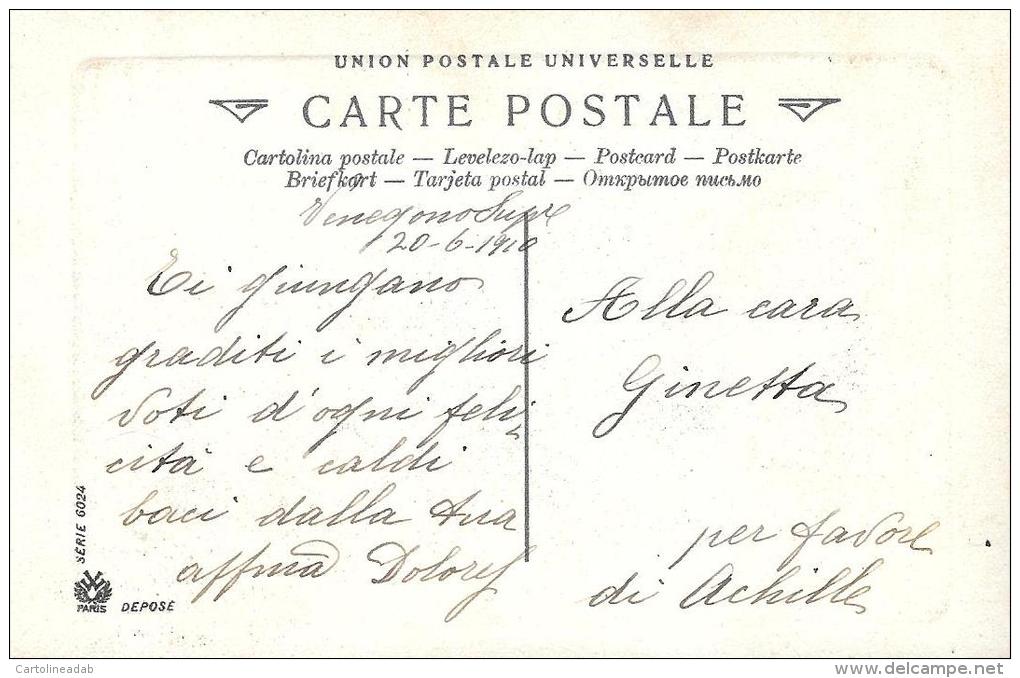 UNION POSTALE UNIVERSELLE
CARTE POSTALE
Cartolina postale — Levelezo-lap — Postcard — Postkarte
Briefkart — Tarjeta postal — Открытое письмо
Venegono Supre
20-6-1910
Ti giungano
graditi i migliori
voti d'ogni feli-
cità e caldi
baci dalla tua
affma Dolores
Alla cara
Ginetta
per favore
di Achille
SERIE 6024
PARIS DEPOSE
Cartolineadab
delcampe.net